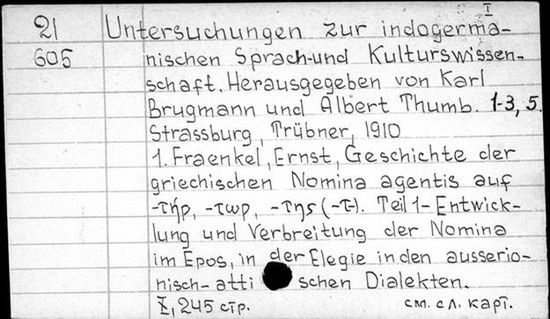 I
21 Untersuchungen zur indogerma-
605 nischen Sprach-und Kulturwissen-
schaft. Herausgegeben von Karl
Brugmann und Albert Thumb. 1-3, 5.
Strassburg, Trübner, 1910
1. Fraenkel, Ernst, Geschichte der
griechischen Nomina agentis auf
-τήρ, -τωρ, -της (-τ-). Teil 1-Entwick-
lung und Verbreitung der Nomina
im Epos, in der Elegie in den ausserio-
nisch-atti schen Dialekten.
X, 245 стр. см. сл. карт.